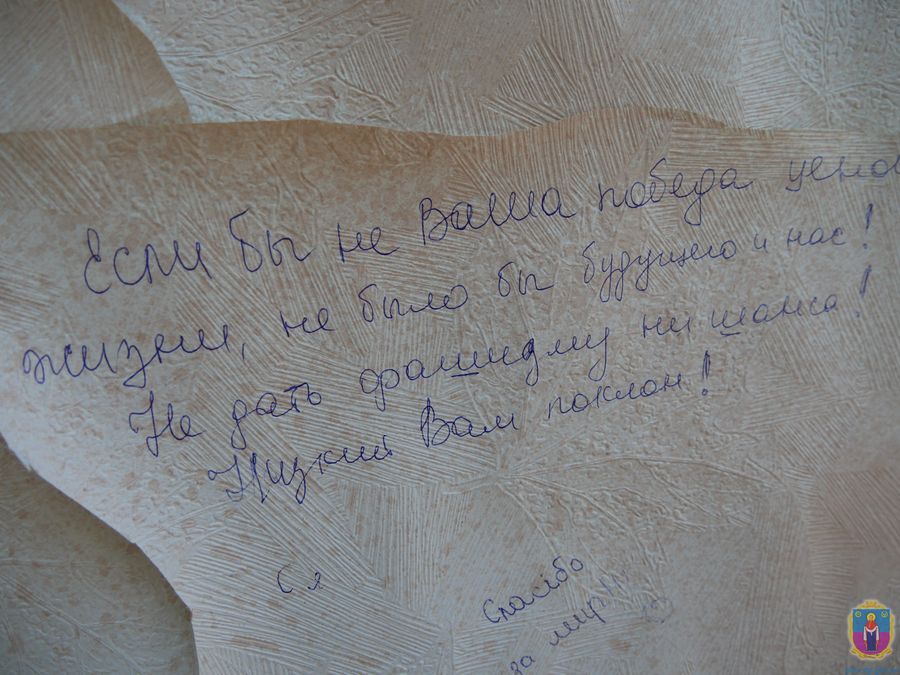 Если бы не Ваша победа цено
жизни, не было бы будущего и нас!
Не дать фашизму ни шанса!
Низкий Вам поклон!
Ся
Спасібо
за мирн